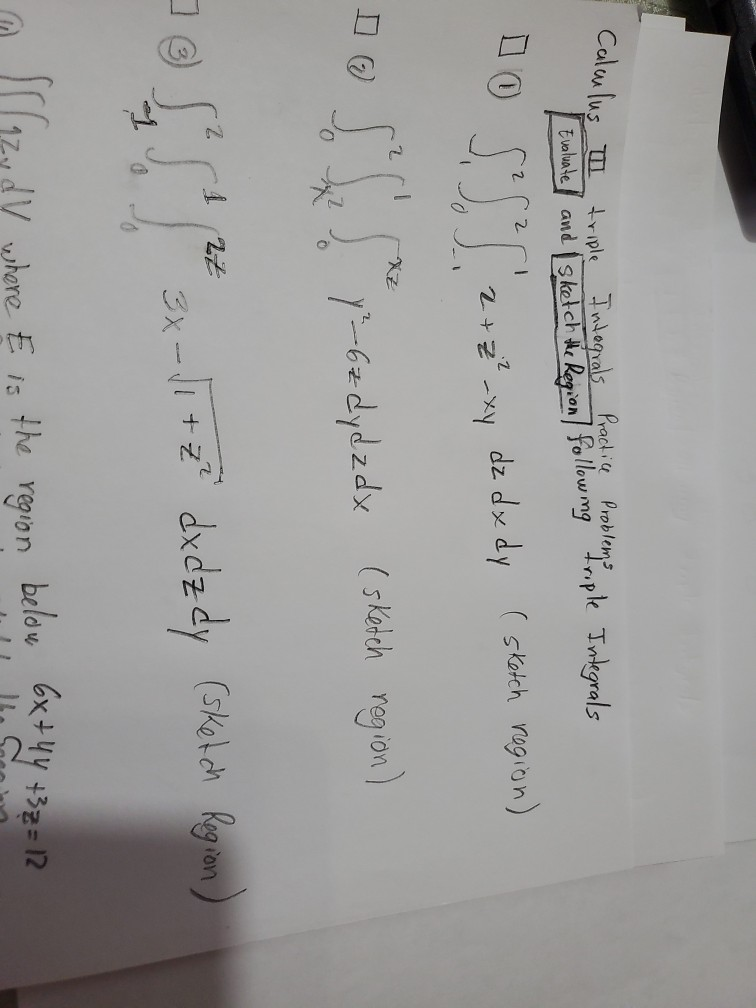 Calculus III triple Integrals Practice Problems
Evaluate and Sketch the Region following triple Integrals
□ ① ∫₁² ∫₀² ∫₋₁¹ 2 + z² - xy dz dx dy (sketch region)
□ ② ∫₀² ∫ₓ₂¹ ∫₀ˣᶻ y² - 6z dy dz dx (sketch region)
□ ③ ∫₋₁² ∫₀¹ ∫₀²ᶻ 3x - √(1 + z²) dx dz dy (Sketch Region)
dV where E is the region below 6x + 4y + 3z = 12